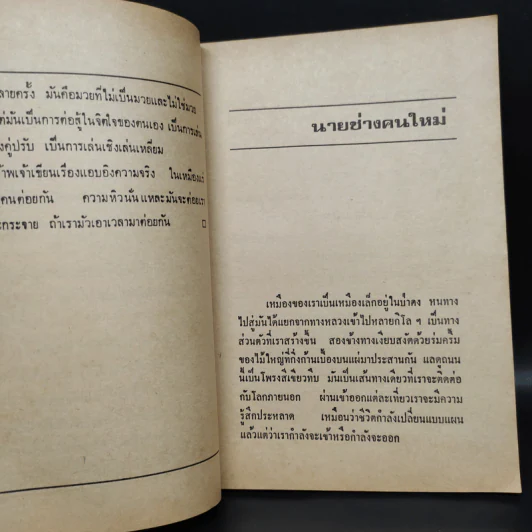 ลายครั้ง มันคือมวยที่ไม่เป็นมวยและไม่ใช่มวย
ต่มันเป็นการต่อสู้ในจิตใจของตนเอง เป็นการเล่น
งคู่ปรับ เป็นการเล่นเชิงเล่นเหลี่ยม
าพเจ้าเขียนเรื่องแอบอิงความจริง ในเหมืองแร่
คนต่อยกัน ความหิวนั้นแหละมันจะต่อยเรา
ะกระจาย ถ้าเรามัวเอาเวลามาต่อยกัน
นายช่างคนใหม่
เหมืองของเราเป็นเหมืองเล็กอยู่ในป่าดง หนทาง
ไปสู่มันได้แยกจากทางหลวงเข้าไปหลายกิโล ๆ เป็นทาง
ส่วนตัวที่เราสร้างขึ้น สองข้างทางเงียบสงัดด้วยร่มครึ้ม
ของไม้ใหญ่ที่กิ่งก้านเบื้องบนแผ่มาประสานกัน แลดูถนน
นี้เป็นโพรงสีเขียวทึบ มันเป็นเส้นทางเดียวที่เราจะติดต่อ
กับโลกภายนอก ผ่านเข้าออกแต่ละเที่ยวเราจะมีความ
รู้สึกประหลาด เหมือนว่าชีวิตกำลังเปลี่ยนแบบแผน
แล้วแต่ว่าเรากำลังจะเข้าหรือกำลังจะออก